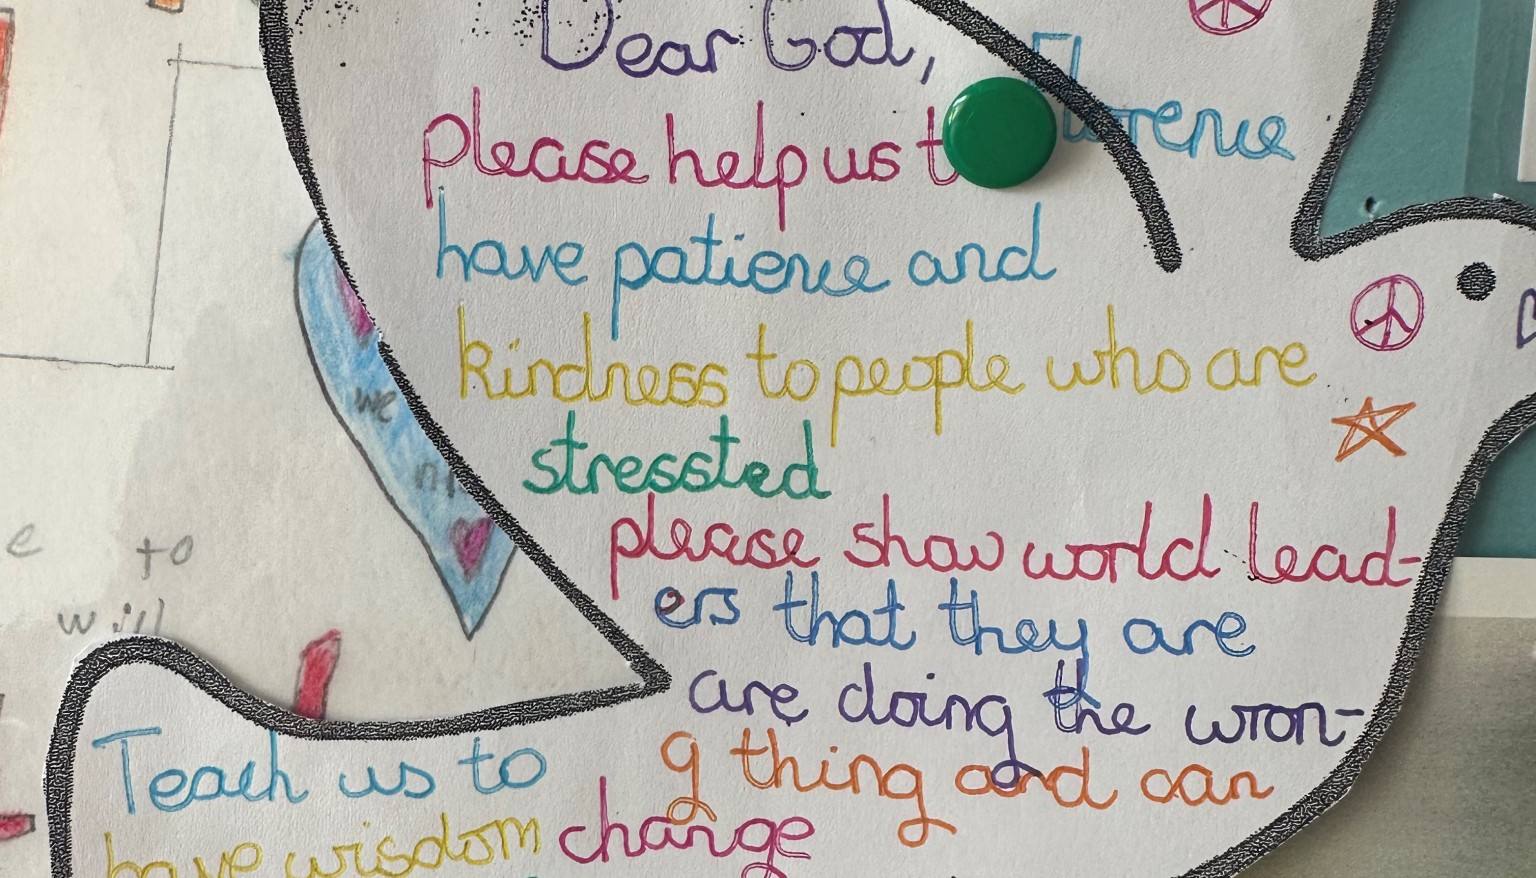 Dear God,
Florence
please help us t
have patience and
kindness to people who are
stressted
please show world lead-
ers that they are
are doing the wron-
g thing and can
change
Teach us to
have wisdom
we
e to
will